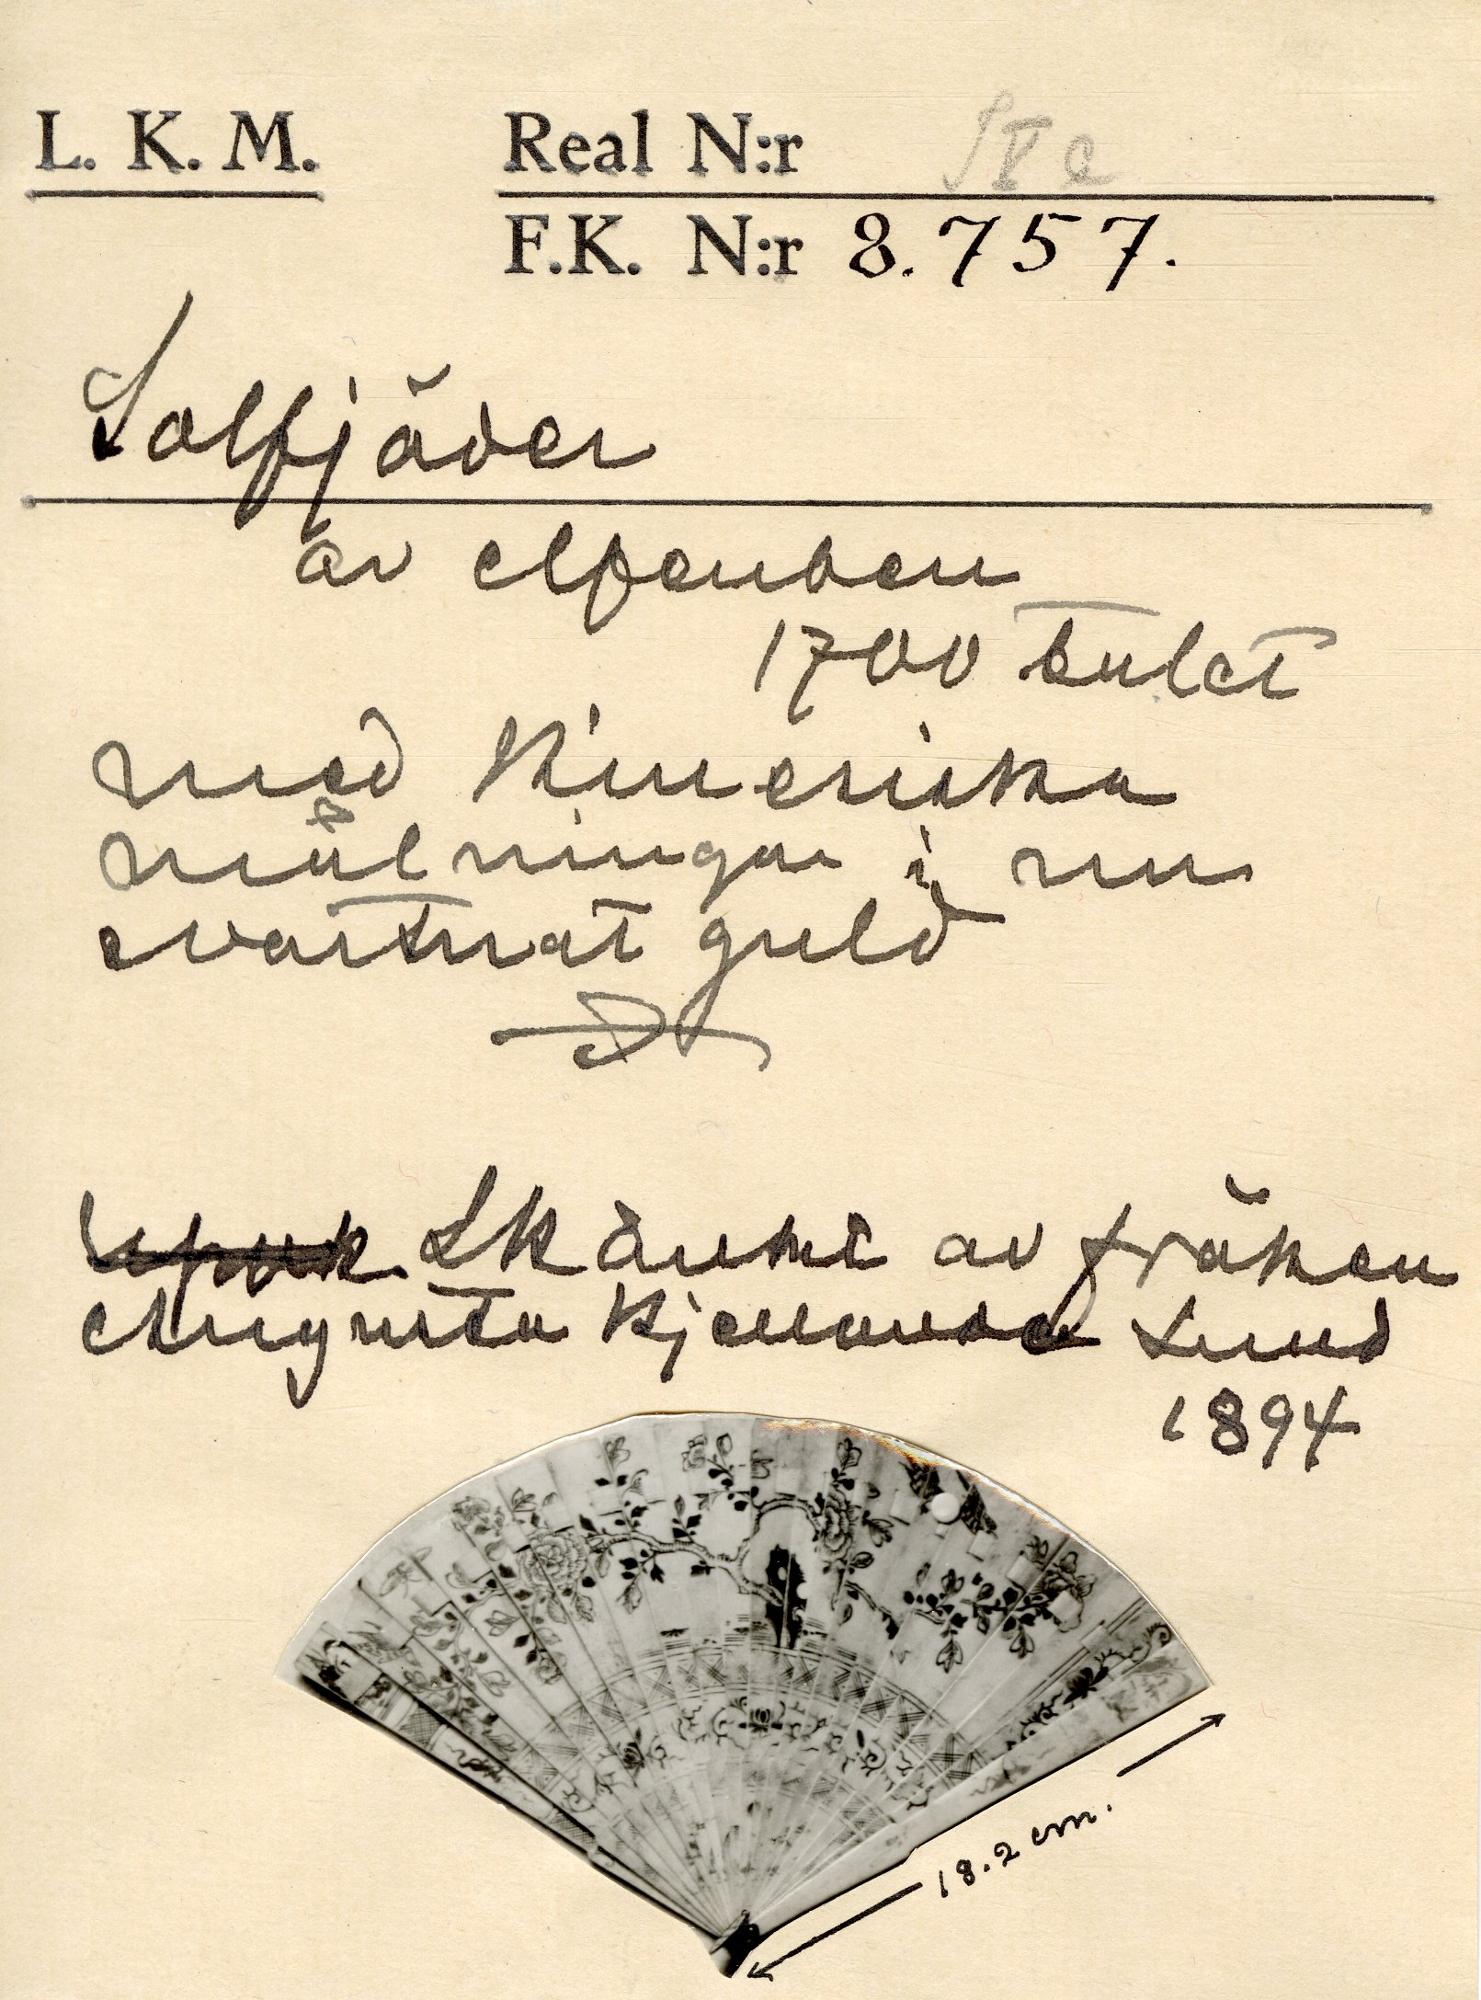 L. K. M.
Real N:r
F.K. N:r 8.757.
Solfjäder
av elfenben
1700 talet
med Kinesiska
målningar i nu
svartnat guld
Skänkt av fröken
Augusta Kjellander Lund
1894
18.2 cm.